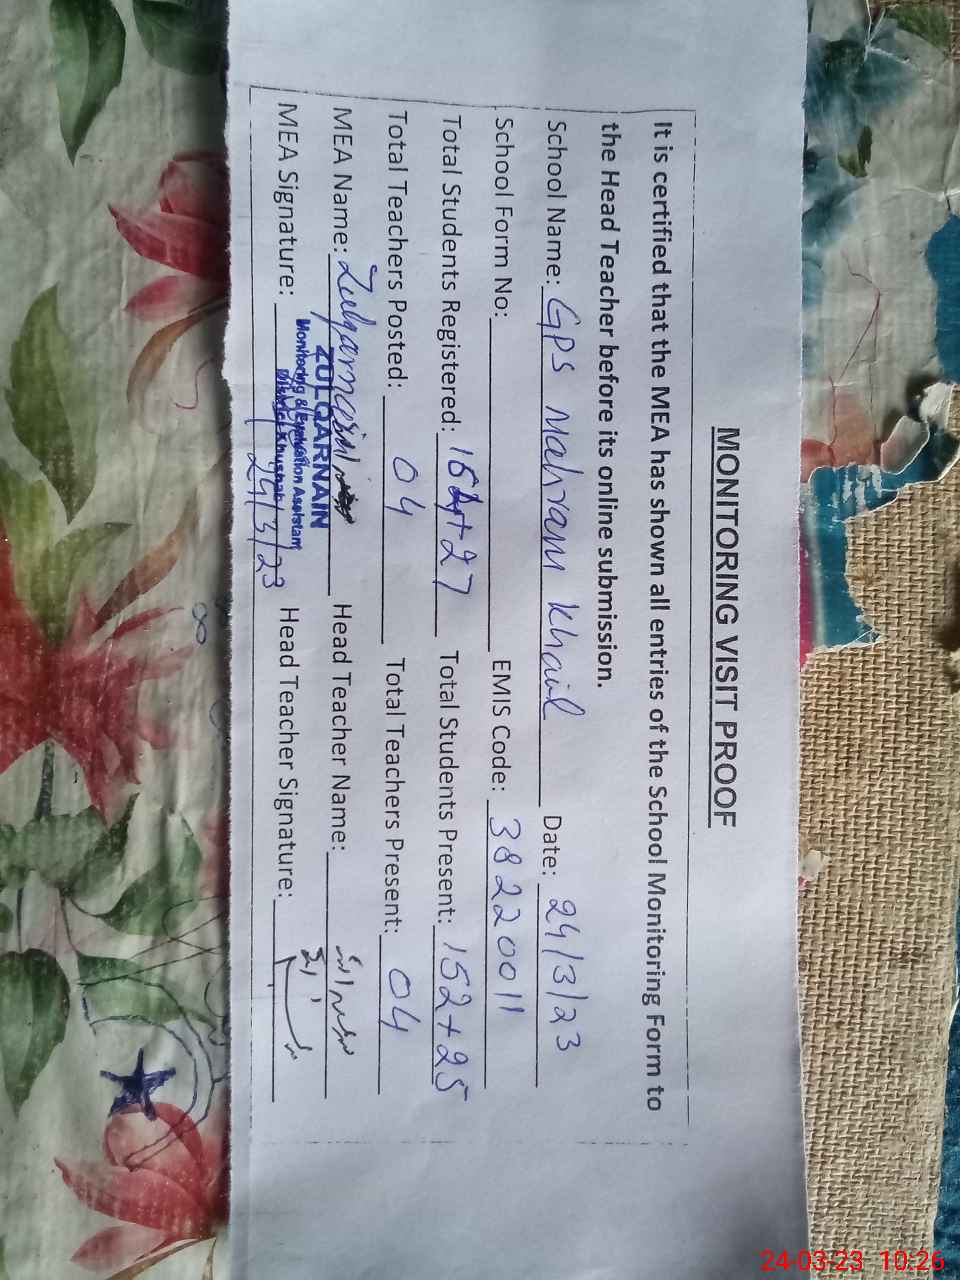 MONITORING VISIT PROOF
It is certified that the MEA has shown all entries of the School Monitoring Form to
the Head Teacher before its online submission.
School Name: GPS Mahram Khail Date: 24/3/23
School Form No: EMIS Code: 38220011
Total Students Registered: 164+27 Total Students Present: 152+25
Total Teachers Posted: 04 Total Teachers Present: 04
MEA Name: Zulqarnain Head Teacher Name:
ZULQARNAIN
Monitoring & Evaluation Assistant
District Khushab
MEA Signature: 24/3/23 Head Teacher Signature:
24-03-23 10:26